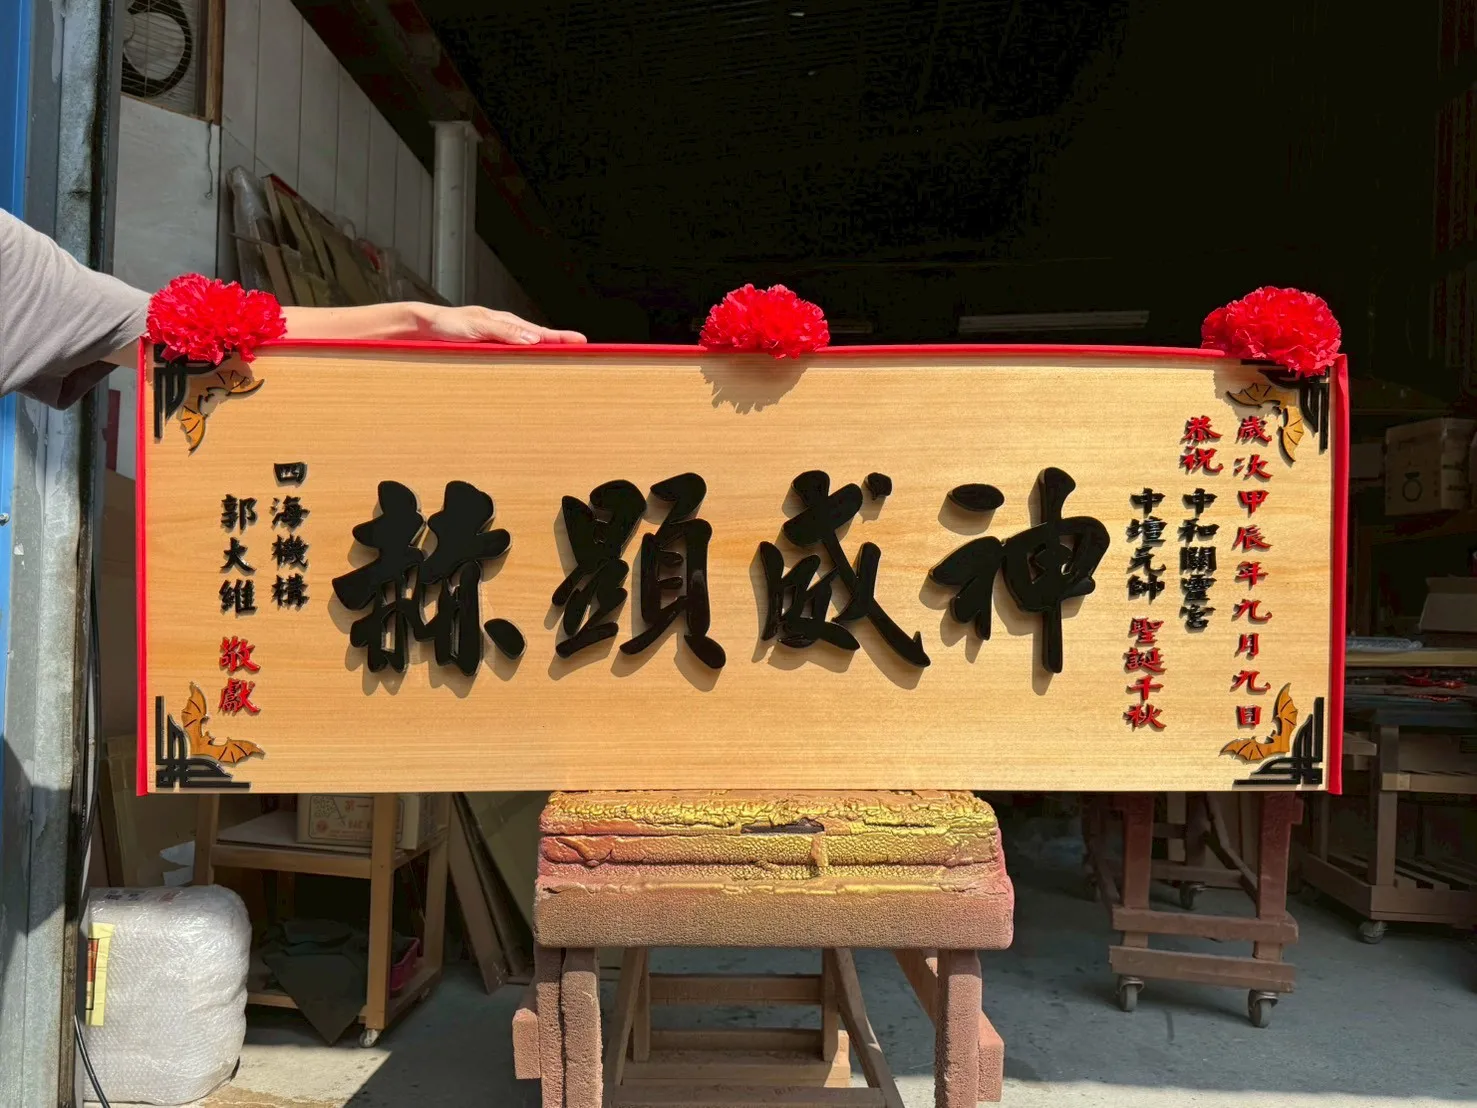 歲次甲辰年九月九日
恭祝 中和關靈宮
中壇元帥 聖誕千秋
神威顯赫
四海機構
郭大維 敬獻